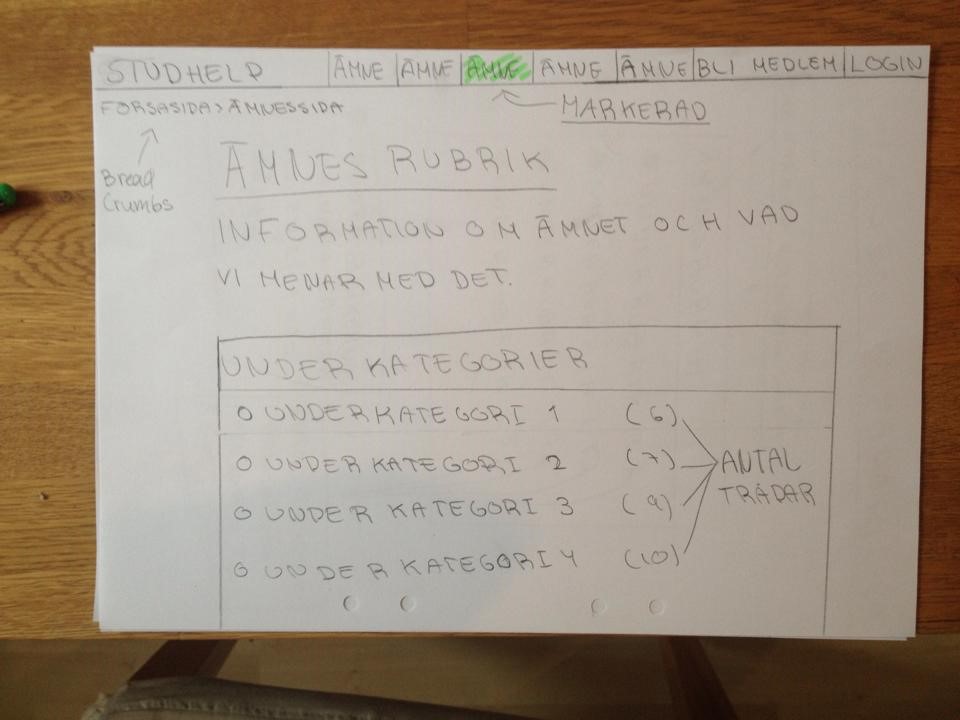 STUDHELP ÄMNE ÄMNE ÄMNE ÄMNE ÄMNE BLI MEDLEM LOGIN
FORSASIDA > ÄMNESSIDA
MARKERAD
Bread
Crumbs
ÄMNES RUBRIK
INFORMATION OM ÄMNET OCH VAD
VI MENAR MED DET.
UNDERKATEGORIER
O UNDERKATEGORI 1 (6)
O UNDERKATEGORI 2 (7)
O UNDERKATEGORI 3 (9)
O UNDERKATEGORI 4 (10)
ANTAL
TRÅDAR